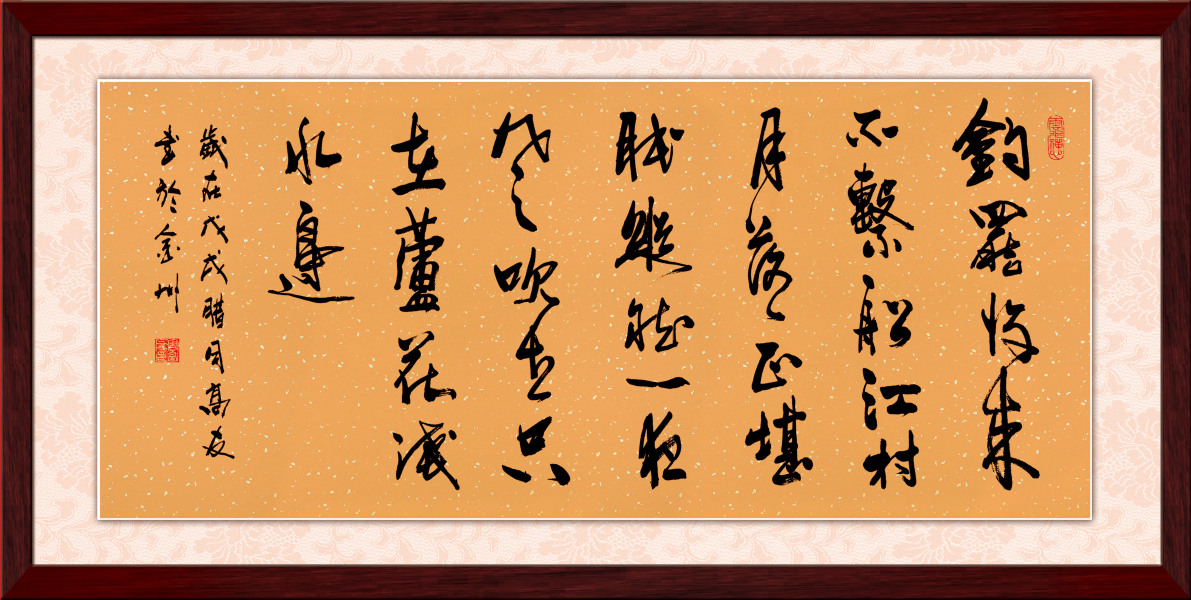 釣罷归来
不繫船江村
月落正堪
眠縱然一夜
风吹去只
在蘆花淺
水邊
歲在戊戌腊月高友
書於金州